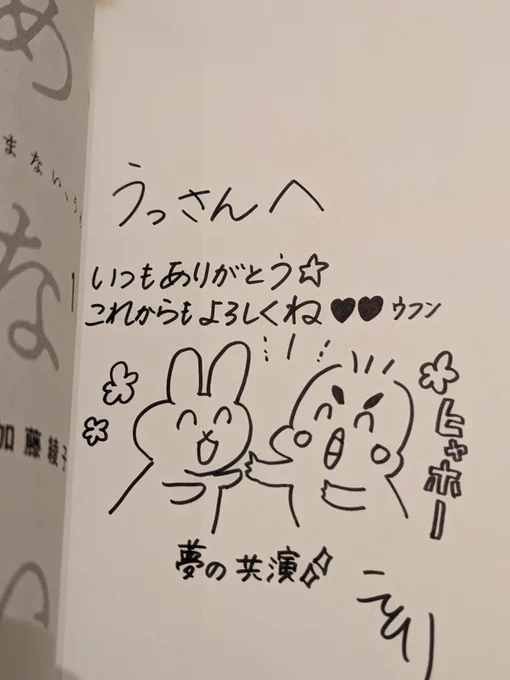 うっさんへ
いつもありがとう☆
これからもよろしくね♥♥ ウフン
ヒャホー
夢の共演
あ
まない、う
な
1
加藤綾子
い